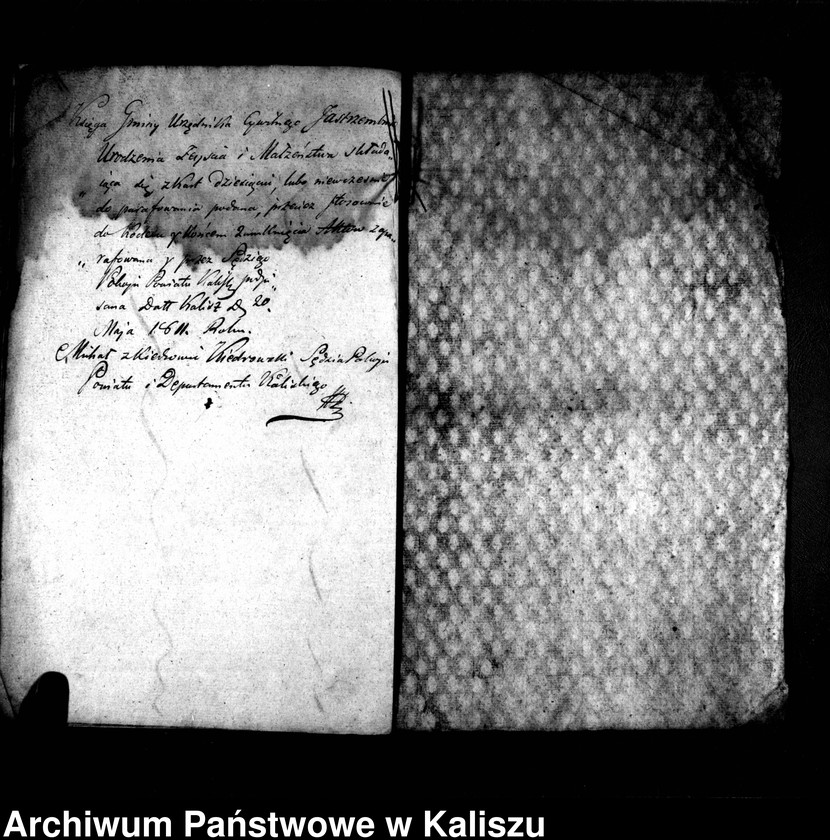 Księga Gminy Urzędnika Cywilnego Jastrzembni
Urodzenia Zeyscia i Małżeństwa składa„
iąca się z kart dziesięciu, lubo niewczesnie
do parafowania podana, przeciez stosownie
do Kodexu y Koncem zamknięcia Aktów zapa„
„ rafowana y przez Sędziego
Pokoju Powiatu Kalisk: podpi„
sana Datt Kalisz D 20.
Maja 1811. Roku.
Michał z Kiedrowic Kiedrowski Sędzia Pokoju
Powiatu i Departamentu Kaliskiego
Archiwum Państwowe w Kaliszu